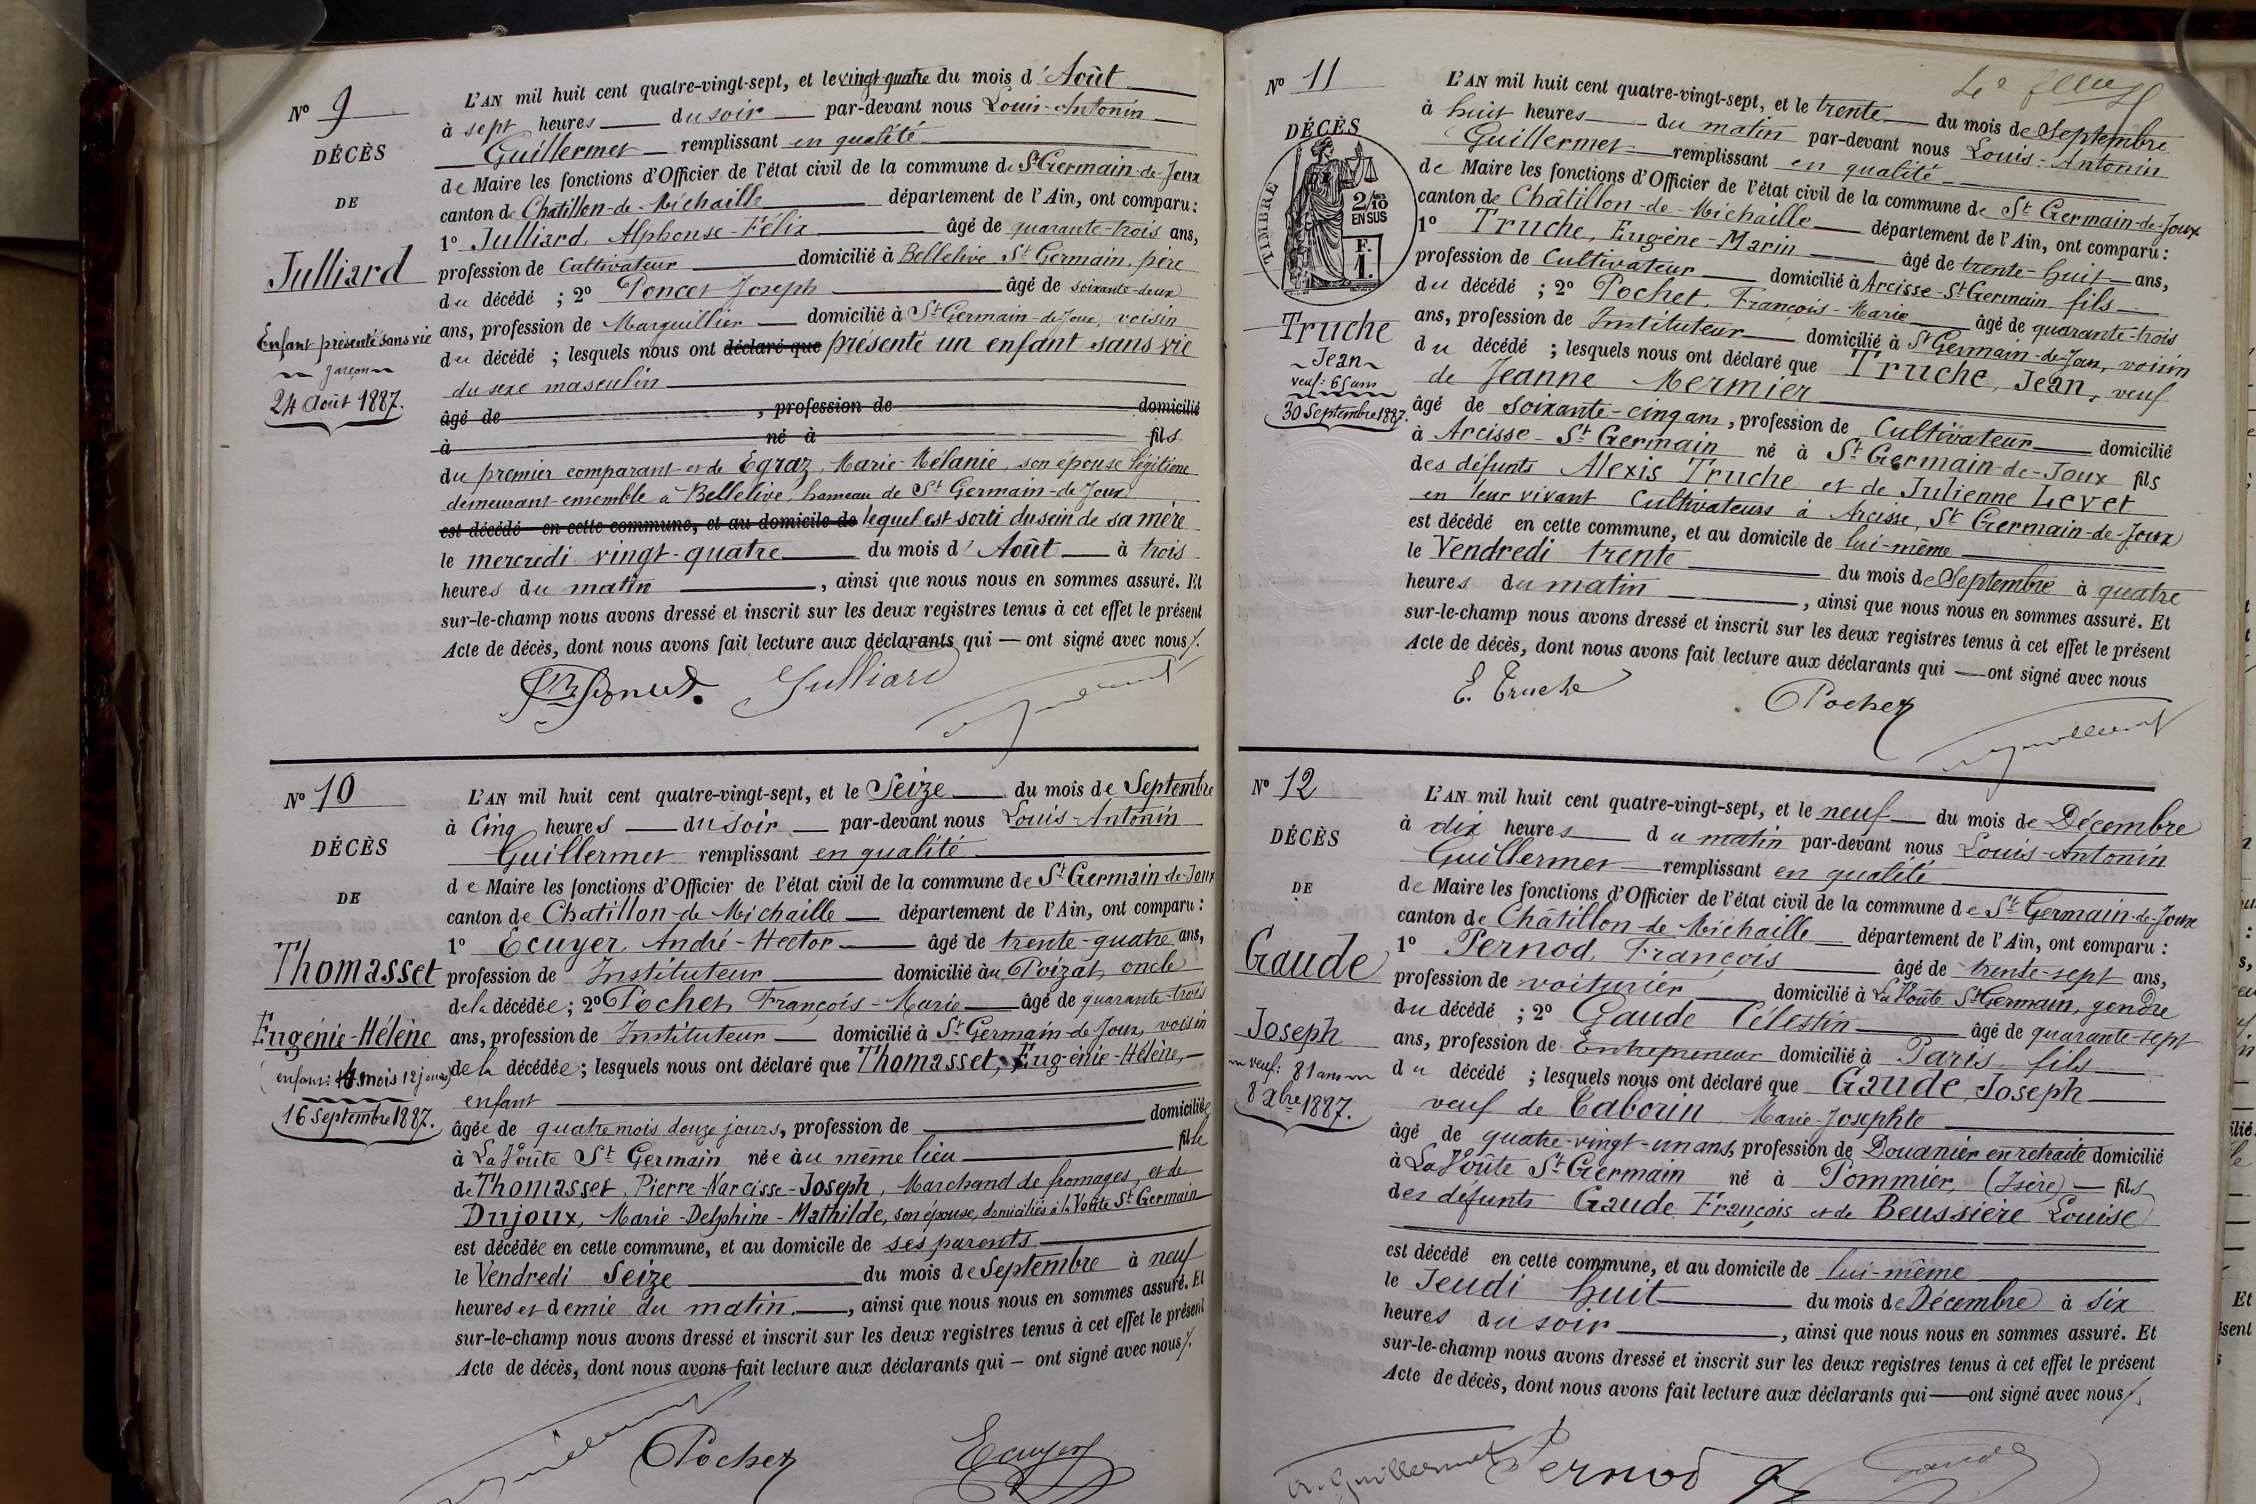 Nº 9
DÉCÈS
DE
Julliard
Enfant présenté sans vie
garçon
24 Août 1887.
L'AN mil huit cent quatre-vingt-sept, et le vingt-quatre du mois d'Août
à sept heures du soir par-devant nous Louis-Antonin
Guillermet remplissant en qualité
de Maire les fonctions d'Officier de l'état civil de la commune de St Germain-de-Joux
canton de Chatillon-de-Michaille département de l'Ain, ont comparu :
1º Julliard, Alphonse-Félix âgé de quarante-trois ans,
profession de Cultivateur domicilié à Bellelive St Germain, père
du décédé ; 2º Poncet Joseph âgé de soixante-deux
ans, profession de Marguillier domicilié à St Germain-de-Joux, voisin
du décédé ; lesquels nous ont déclaré que présenté un enfant sans vie
du sexe masculin
âgé de , profession de domicilié
à né à fils
du premier comparant et de Egraz, Marie-Mélanie, son épouse légitime
demeurant ensemble à Bellelive, hameau de St Germain-de-Joux
est décédé en cette commune, et au domicile de lequel est sorti du sein de sa mère
le mercredi vingt-quatre du mois d'Août à trois
heures du matin , ainsi que nous nous en sommes assuré. Et
sur-le-champ nous avons dressé et inscrit sur les deux registres tenus à cet effet le présent
Acte de décès, dont nous avons fait lecture aux déclarants qui — ont signé avec nous
Julliard
Nº 10
DÉCÈS
DE
Thomasset
Eugénie-Hélène
enfant: 4 mois 12 jours
16 Septembre 1887.
L'AN mil huit cent quatre-vingt-sept, et le Seize du mois de Septembre
à Cinq heures du soir par-devant nous Louis-Antonin
Guillermet remplissant en qualité
de Maire les fonctions d'Officier de l'état civil de la commune de St Germain-de-Joux
canton de Chatillon-de-Michaille département de l'Ain, ont comparu :
1º Ecuyer, André-Hector âgé de trente-quatre ans,
profession de Instituteur domicilié au Poizat, oncle
de la décédée ; 2º Pochet, François-Marie âgé de quarante-trois
ans, profession de Instituteur domicilié à St Germain-de-Joux, voisin
de la décédée ; lesquels nous ont déclaré que Thomasset, Eugénie-Hélène,
enfant
âgée de quatre mois douze jours, profession de domiciliée
à La Voûte St Germain née au même lieu fille
de Thomasset, Pierre-Narcisse-Joseph, Marchand de fromages, et de
Dujoux, Marie-Delphine-Mathilde, son épouse, domiciliés à la Voûte St Germain
est décédée en cette commune, et au domicile de ses parents
le Vendredi Seize du mois de Septembre à neuf
heures et demie du matin , ainsi que nous nous en sommes assuré. Et
sur-le-champ nous avons dressé et inscrit sur les deux registres tenus à cet effet le présent
Acte de décès, dont nous avons fait lecture aux déclarants qui — ont signé avec nous
Pochet
Ecuyer
Nº 11
DÉCÈS
TIMBRE
2/10
EN SUS
F.
1.
Truche
Jean
veuf: 65 ans
30 Septembre 1887.
L'AN mil huit cent quatre-vingt-sept, et le trente du mois de Septembre
à huit heures du matin par-devant nous Louis-Antonin
Guillermet remplissant en qualité
de Maire les fonctions d'Officier de l'état civil de la commune de St Germain-de-Joux
canton de Châtillon-de-Michaille département de l'Ain, ont comparu :
1º Truche, Eugène-Marin âgé de trente-huit ans,
profession de Cultivateur domicilié à Arcisse-St Germain, fils
du décédé ; 2º Pochet, François-Marie âgé de quarante-trois
ans, profession de Instituteur domicilié à St Germain-de-Joux, voisin
du décédé ; lesquels nous ont déclaré que Truche, Jean, veuf
de Jeanne Mermier
âgé de soixante-cinq ans, profession de Cultivateur domicilié
à Arcisse-St Germain né à St Germain-de-Joux fils
des défunts Alexis Truche et de Julienne Levet
en leur vivant Cultivateurs à Arcisse, St Germain-de-Joux
est décédé en cette commune, et au domicile de lui-même
le Vendredi trente du mois de Septembre à quatre
heures du matin , ainsi que nous nous en sommes assuré. Et
sur-le-champ nous avons dressé et inscrit sur les deux registres tenus à cet effet le présent
Acte de décès, dont nous avons fait lecture aux déclarants qui — ont signé avec nous
E. Truche
Pochet
Guillermet
Nº 12
DÉCÈS
DE
Gaude
Joseph
veuf: 81 ans
8 Xbre 1887.
L'AN mil huit cent quatre-vingt-sept, et le neuf du mois de Décembre
à dix heures du matin par-devant nous Louis-Antonin
Guillermet remplissant en qualité
de Maire les fonctions d'Officier de l'état civil de la commune de St Germain-de-Joux
canton de Châtillon-de-Michaille département de l'Ain, ont comparu :
1º Pernod, François âgé de trente-sept ans,
profession de voiturier domicilié à La Voûte St Germain, gendre
du décédé ; 2º Gaude Célestin âgé de quarante-sept
ans, profession de Entrepreneur domicilié à Paris, fils
du décédé ; lesquels nous ont déclaré que Gaude, Joseph
veuf de Taborin Marie-Josephte
âgé de quatre-vingt-un ans, profession de Douanier en retraite domicilié
à La Voûte St Germain né à Pommier, (Isère) fils
des défunts Gaude François et de Beussière Louise
est décédé en cette commune, et au domicile de lui-même
le Jeudi huit du mois de Décembre à six
heures du soir , ainsi que nous nous en sommes assuré. Et
sur-le-champ nous avons dressé et inscrit sur les deux registres tenus à cet effet le présent
Acte de décès, dont nous avons fait lecture aux déclarants qui — ont signé avec nous
A. Guillermet
Pernod
Gaude